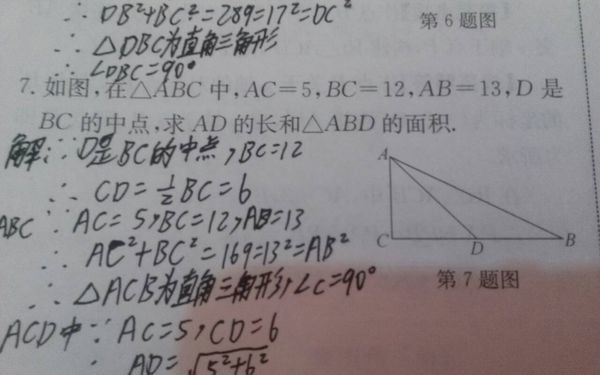 ∴ DB²+BC²=289=17²=DC²
第6题图
∴ △DBC为直角三角形
∴ ∠DBC=90°
7. 如图,在△ABC 中,AC=5,BC=12,AB=13,D 是
BC 的中点,求 AD 的长和△ABD 的面积.
解:∵D是BC的中点,BC=12
∴ CD=½BC=6
A
C
D
B
第7题图
ABC ∵ AC=5,BC=12,AB=13
∴ AC²+BC²=169=13²=AB²
∴ △ACB为直角三角形,∠C=90°
ACD中∵ AC=5,CD=6
∴ AD=√5²+6²